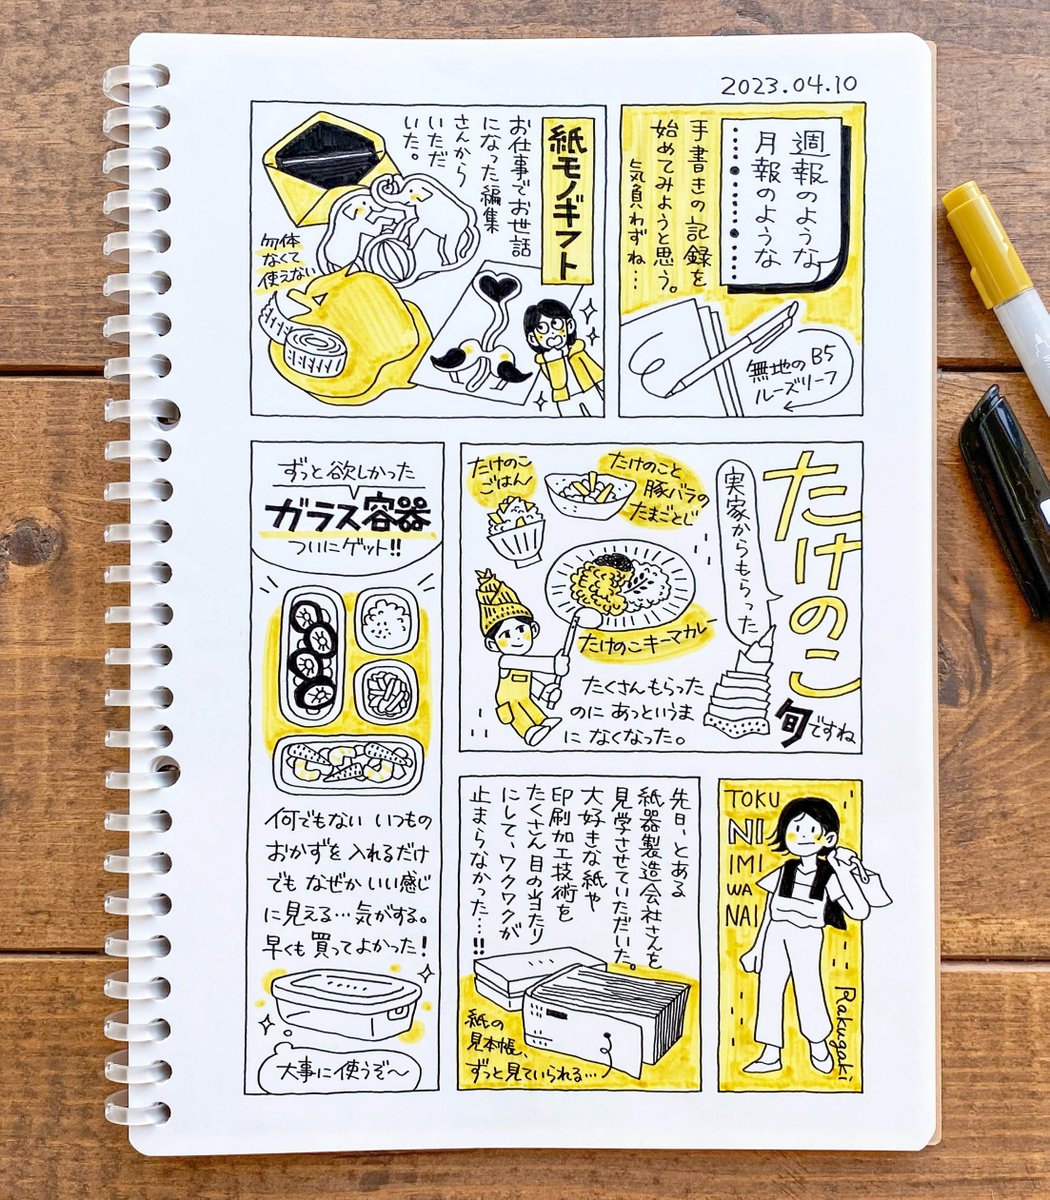 2023.04.10
週報のような
月報のような
手書きの記録を
始めてみようと思う。
気負わずね…
無地のB5
ルーズリーフ
紙モノギフト
お仕事でお世話
になった編集
さんから
いただ
いた。
勿体
なくて
使えない
たけのこ
旬ですね
実家からもらった
たけのこと、
豚バラの
たまごとじ
たけのこ
ごはん
たけのこキーマカレー
たくさんもらった
のに あっというま
に なくなった。
ずっと欲しかった
ガラス容器
ついにゲット!!
何でもない いつもの
おかずを 入れるだけ
でも なぜか いい感じ
に見える…気がする。
早くも買ってよかった!
大事に使うぞ〜
先日、とある
紙器製造会社さんを
見学させていただいた。
大好きな紙や
印刷加工技術を
たくさん目の当たり
にして、ワクワクが
止まらなかった…!!
紙の
見本帳、
ずっと見ていられる…
TOKU
NI
IMI
WA
NAI
Rakugaki